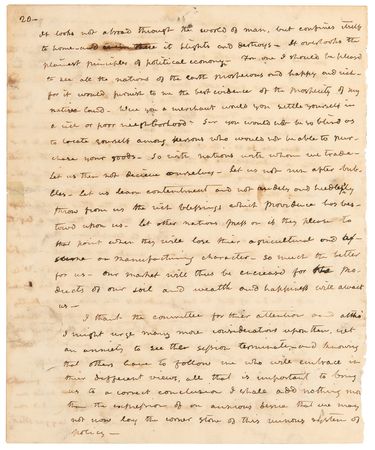 20-
It looks not abroad through the world of man, but confines itself
to home and even there it blights and destroys - It overlooks the
plainest principles of political economy - For one I should be pleased
to see all the nations of the earth prosperous and happy and rich -
for it would furnish to me the best evidence of the prosperity of my
native land - Were you a merchant would you settle yourself in
a rich or poor neighborhood? Sir you would not be so blind as
to locate yourself among persons who would not be able to pur-
chase your goods - So with nations with whom we trade -
let us then not deceive ourselves - Let us not run after bub-
bles - Let us learn contentment and not rudely and heedlessly
throw from us the rich blessings which Providence has bes-
towed upon us - Let other nations press on if they please to
that point when they will lose their agricultural and
assume a manufacturing character - So much the better
for us - our market will thus be increased for the pro-
ducts of our soil and wealth and happiness will await
us -
I thank the committee for their attention and altho
I might urge many more considerations upon them, yet
as anxiety to see this session terminate, and knowing
that others have to follow me who will embrace in
their different views, all that is important to bring
us to a correct conclusion I shall add nothing more
than the expression of an anxious desire that we may
not now lay the corner stone of this ruinous system of
policy -